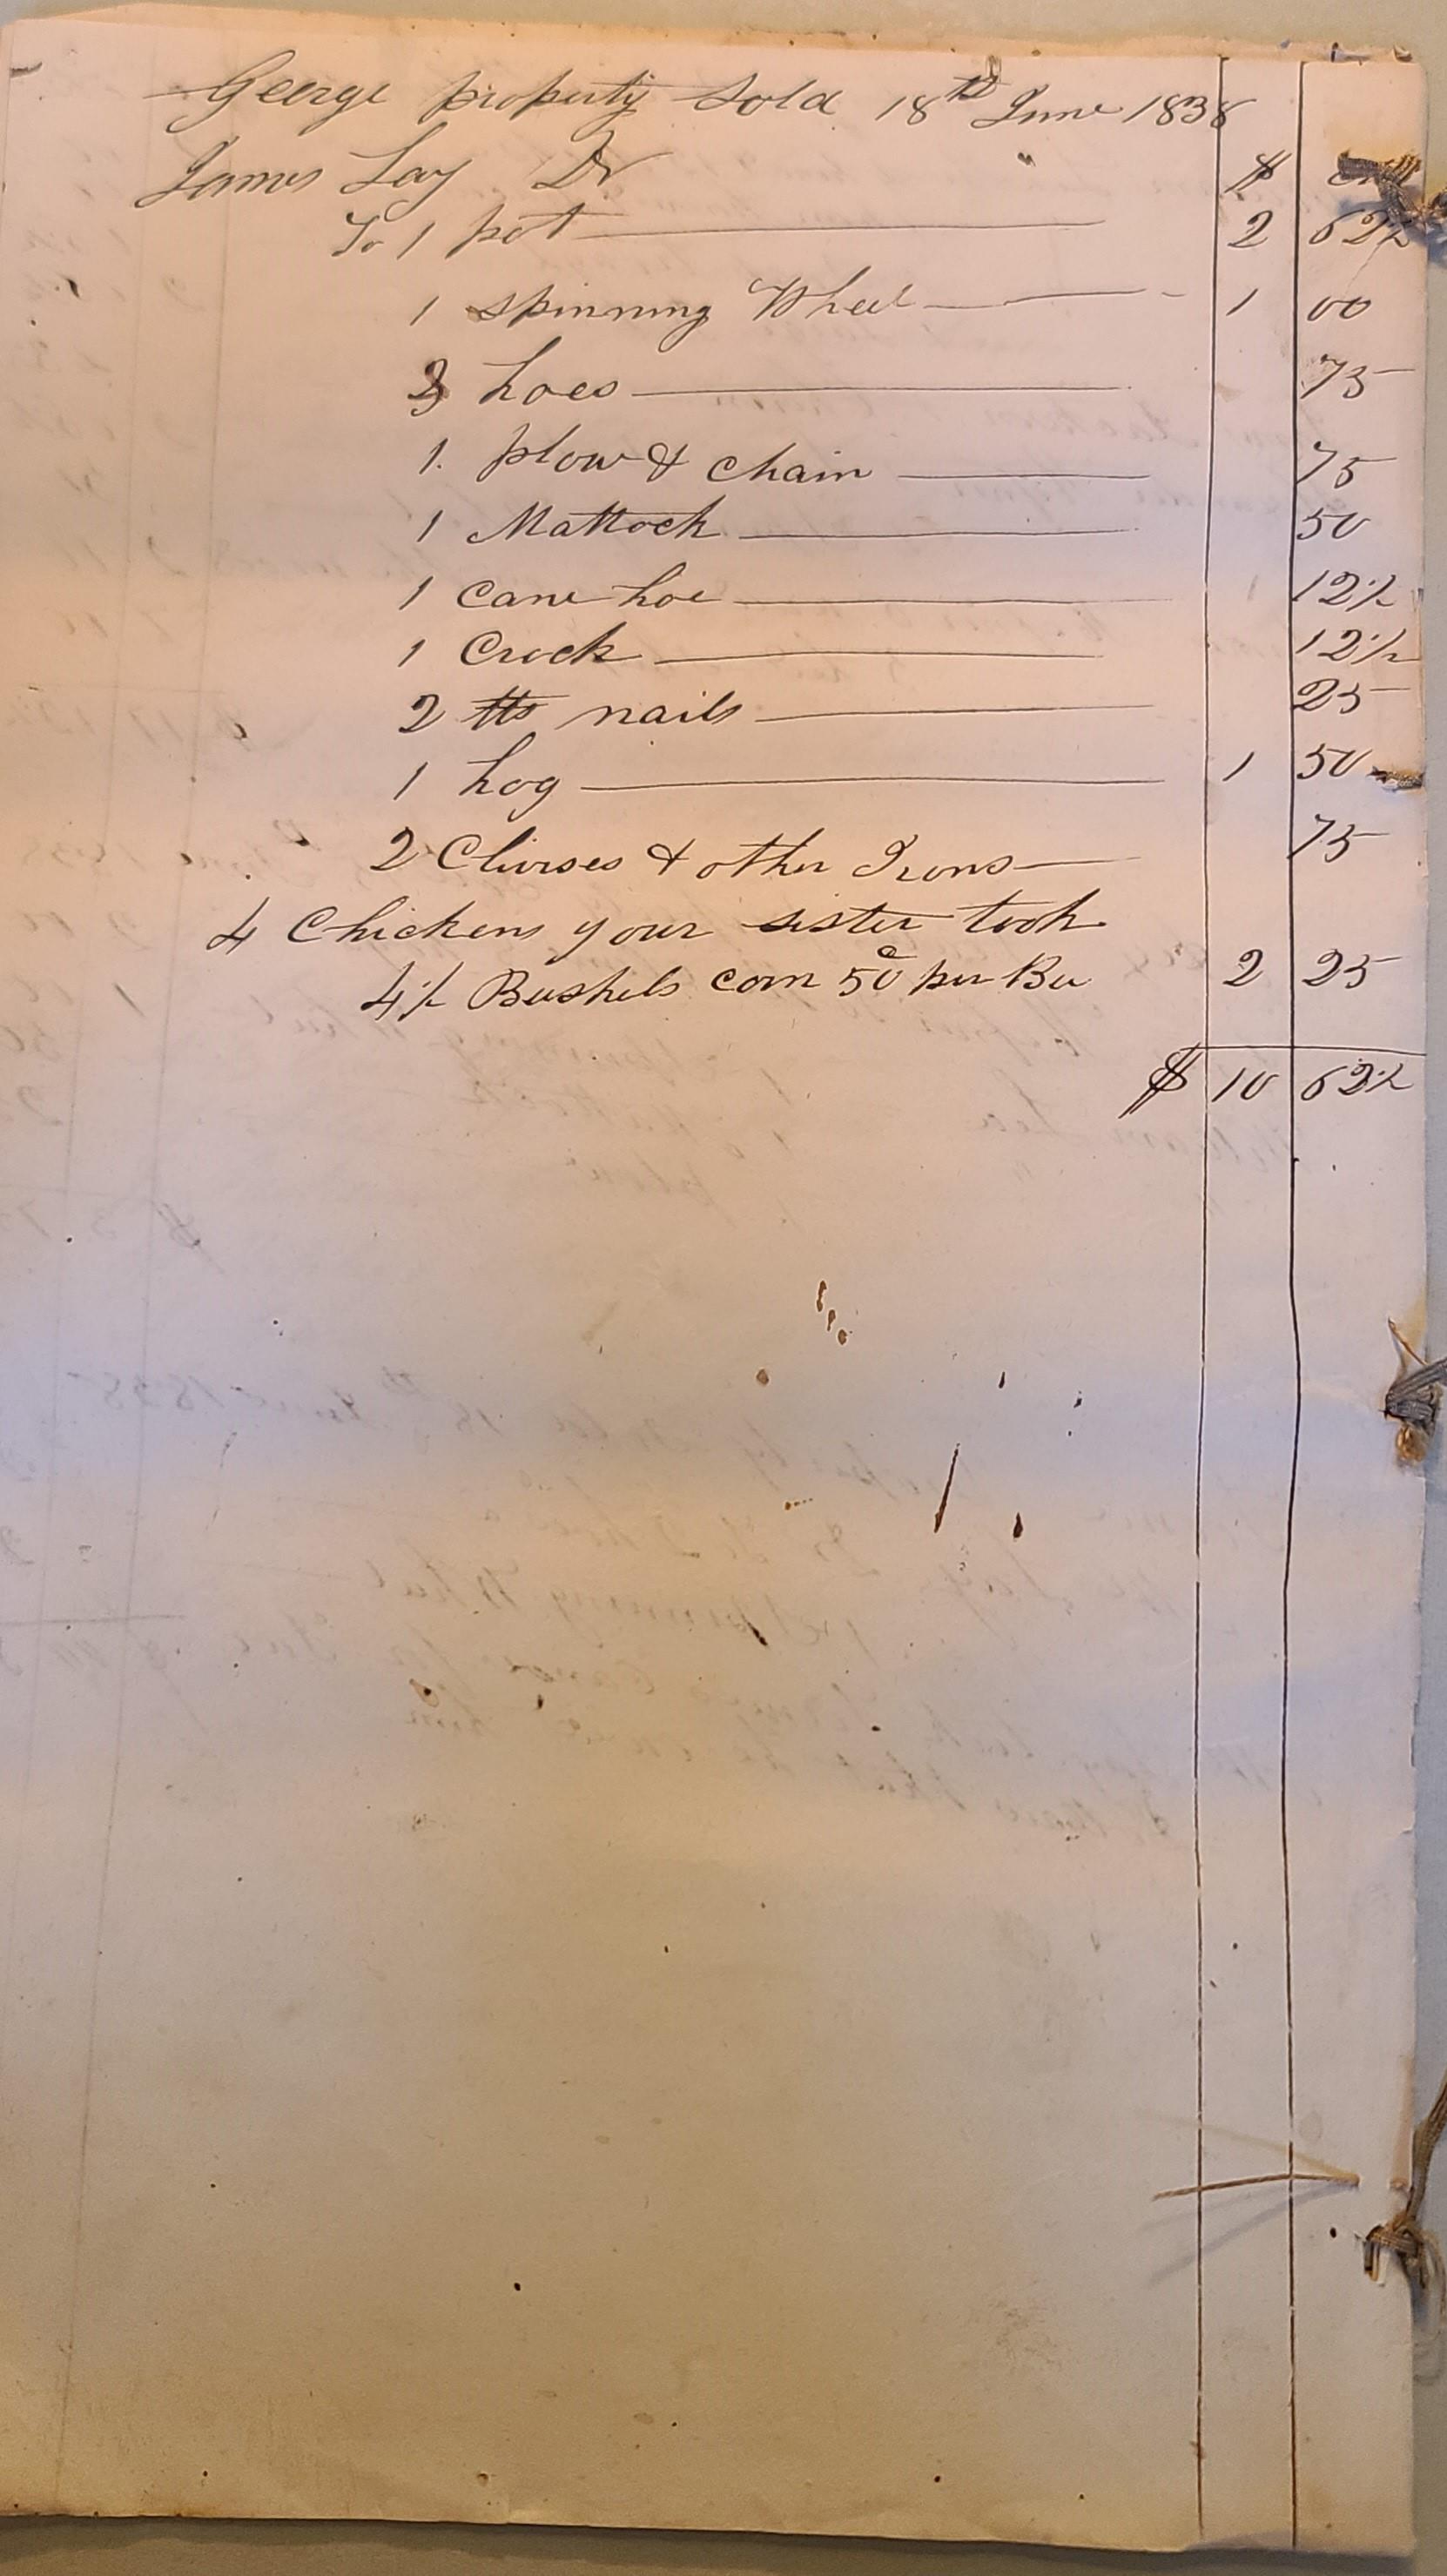 George property Sold 18th June 1838
James Lay Dr $ cts
To 1 pot 2 62½
1 spinning Wheel 1 00
3 hoes 75
1. plow & chain 75
1 Mattock 50
1 Cane hoe 12½
1 Crock 12½
2 lbs nails 25
1 hog 1 50
2 Clivises & other Irons 75
4 Chickens your sister took
4½ Bushels corn 50c per Bu 2 25
$ 10 62½